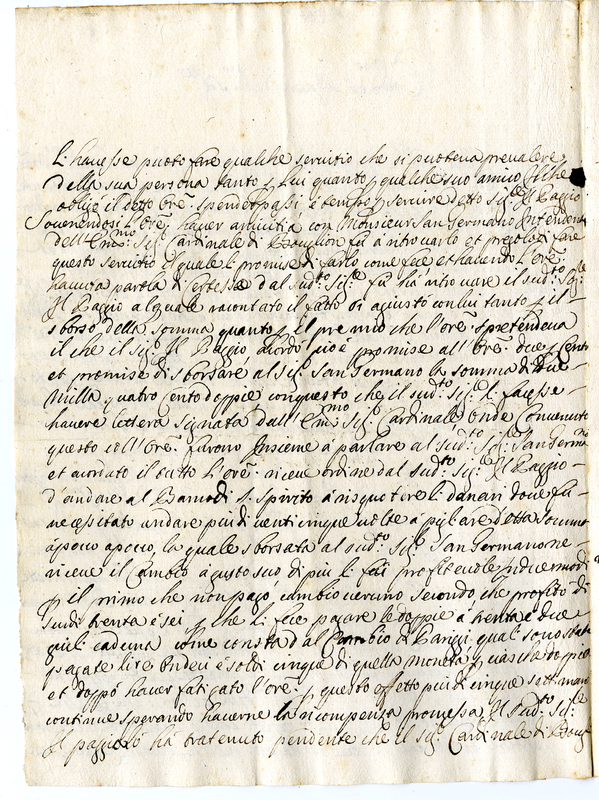 li havesse puoto fare qualche servitio che si puoteva prevalere
della sua persona tanto p lui quanto p qualche suo amico, il che
obligò il detto Ore. spender passi e tempo p servire detto Sigre. Il Baggio
Sovenendosi l'Ore. haver amicitia con Monsieur San Germano Intendente
dell'Emmo. Sigr. Cardinale di Bouglion fù à ritrovarlo et pregollo fare
questo servitio il quale li promise di farlo come fece et havendo l'Ore.
havuta parola di certezza dal sudto. Sige. fù hà ritrovare il sudto. Sigre
Il Baggio al quale racontato il fatto si agiustò con lui tanto p il
sborso della somma quanto p il premio che l'Ore. pretendeva
il che il Sigr. Il Baggio acordò cioè promise all'Ore. due cento
et promise di sborsare al Sigr. San Germano la somma di due
milla quatro cento doppie con questo che il sudto. Sigre. li facesse
havere lettera signata dall'Emmo. Sigr. Cardinale onde convenuto
questo coll'Ore. furono Insieme à parlare al sudto. Sigre. San Germa
et acordato il tutto l'Ore. riceve ordine dal sudto. Sigre. Il Baggio
d'andare al Banco di S. Spirito à risquotere li danari dove fu
necessitato andare più di venti cinque volte à pigliare detta somma
à pocco à pocco, la quale sborsata al sudto. Sigr. San Germano ne
riceve il Cambio à gusto suo di più li fù profitevole in due modi
p il primo che non pagò cambio veruno secondo che profitò di
scudi trenta e sei p che li fece pagare le doppie à trenta e due
giulii caduna come consta dal Cambio di Parigi quali sono state
pagate lire Undeci e soldi cinque di quella moneta p ciascheduna
et doppò haver fatigato l'Ore. p questo effetto più di cinque settimane
continue sperando haverne la ricompenza promessa Il sudto. Sigre
Il Paggio hà tratenuto pendente che il Sigr. Cardinale di Boug